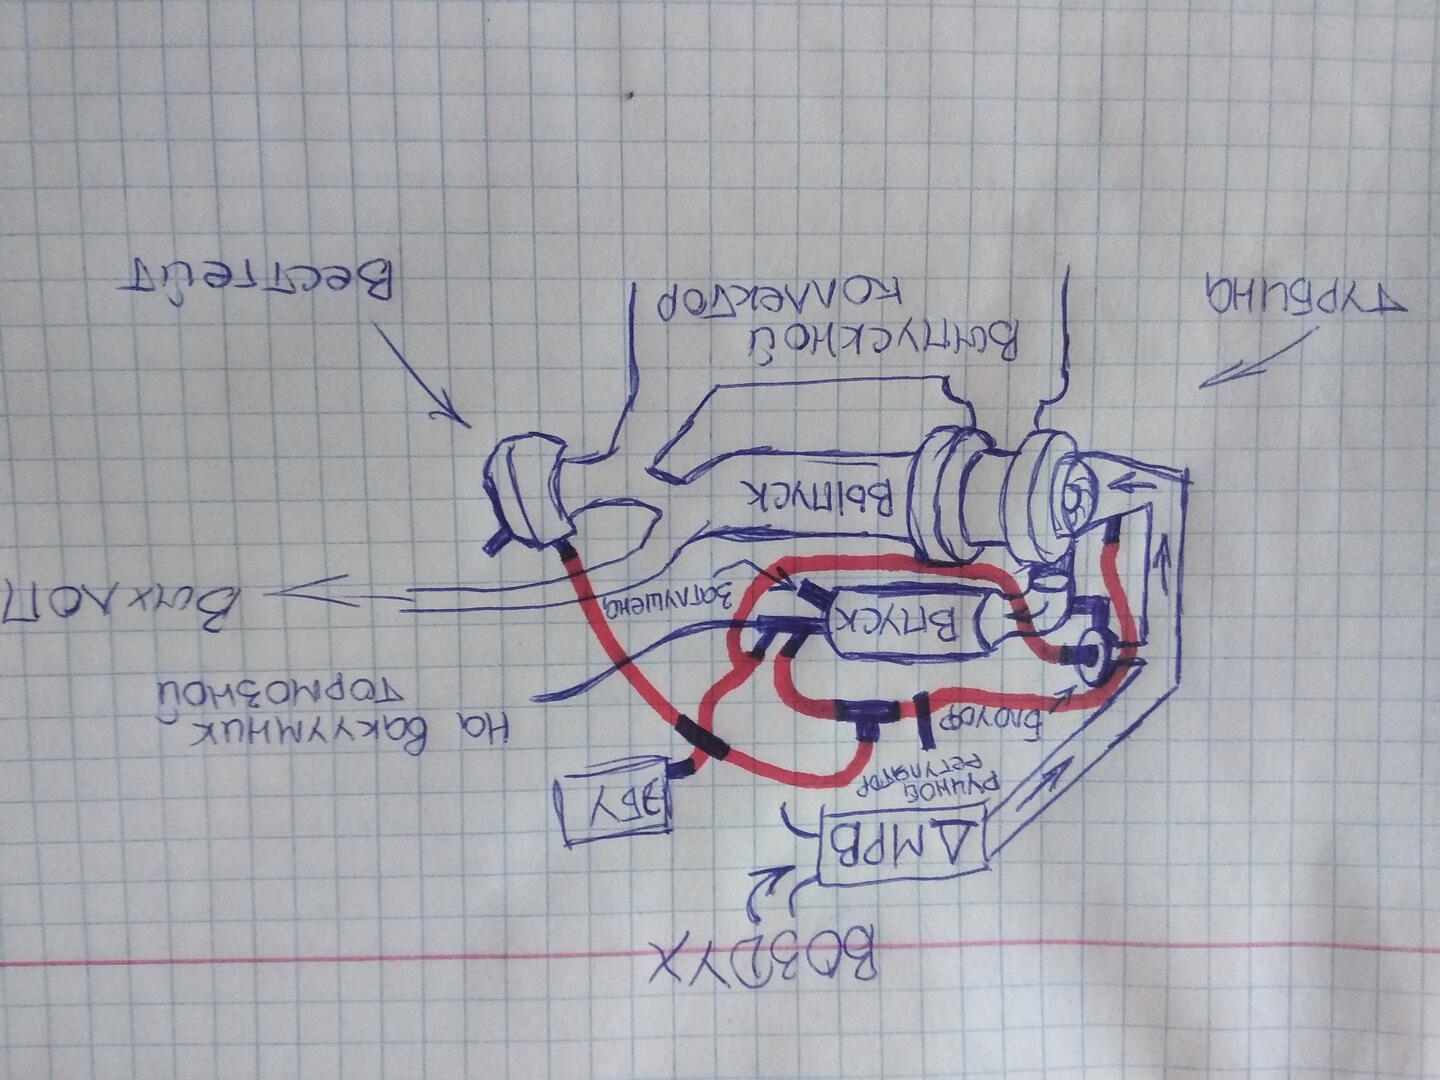 ВОЗДУХ
ДМРВ
РУЧНОЙ
РЕГУЛЯТОР
ЭБУ
БЛОУОФ
На Вакуумник
ТОРМОЗНОЙ
ВПУСК
Заглушена
Выхлоп
ВЫПУСК
ТУРБИНа
Выпускной
коллектор
Вестгейт